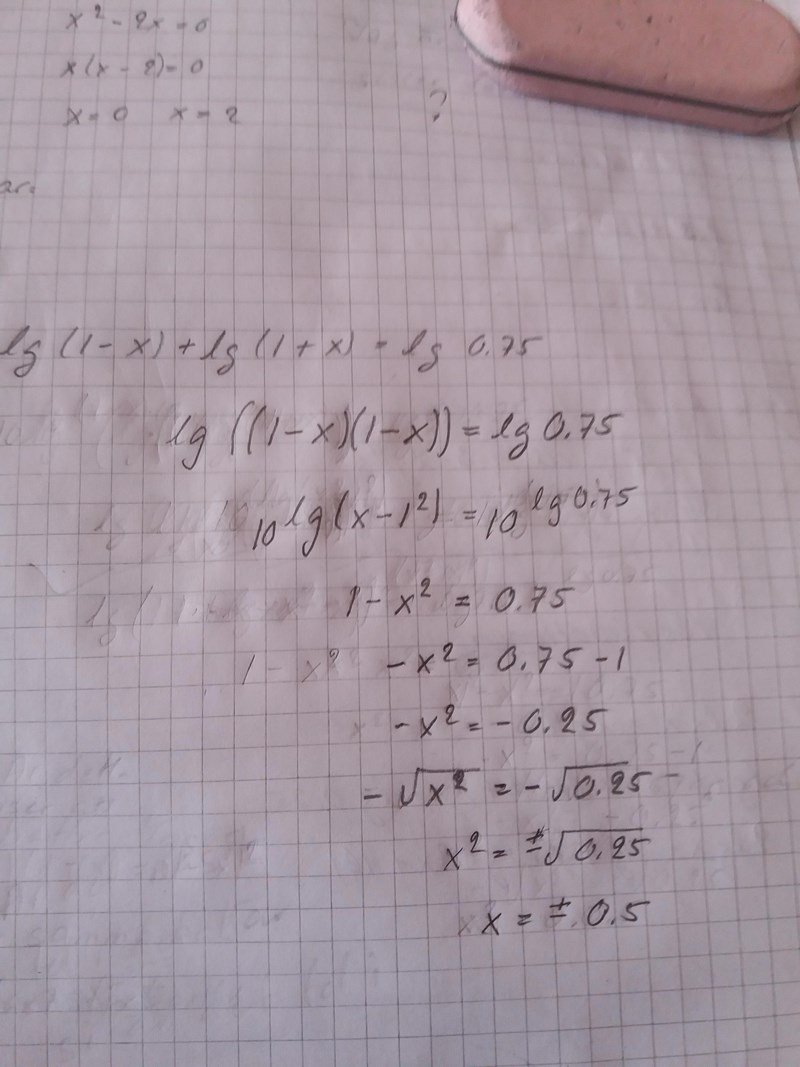 x² - 2x = 0
x(x - 2) = 0
x = 0 x = 2
?
lg (1 - x) + lg (1 + x) = lg 0.75
lg ((1 - x)(1 - x)) = lg 0.75
10^lg(x - 1²) = 10^lg 0.75
1 - x² = 0.75
1 - x² - x² = 0.75 - 1
- x² = - 0.25
- √x² = - √0.25
x² = ± √0.25
x = ± 0.5